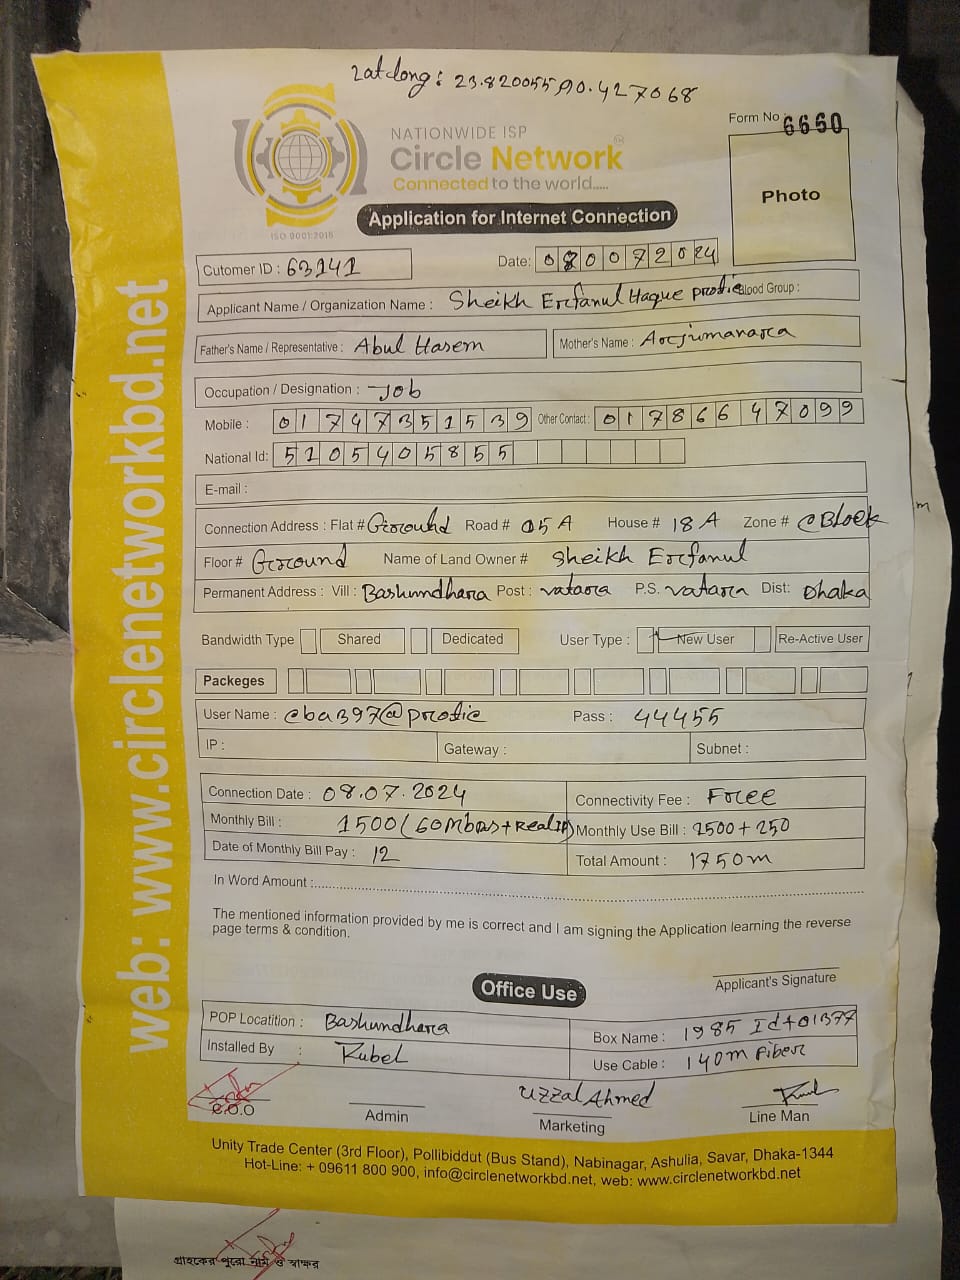 Latlong: 23.820055,90.427068
NATIONWIDE ISP
Circle Network
Connected to the world.....
ISO 9001:2015
Form No 6660
Photo
Application for Internet Connection
Cutomer ID : 63141
Date: 08072024
Applicant Name / Organization Name : Sheikh Erfanul Haque prodie Blood Group :
Father's Name / Representative : Abul Hasem Mother's Name : Arjumanara
Occupation / Designation : Job
Mobile : 01747351539 Other Contact : 01786647099
National Id: 5105405855
E-mail :
Connection Address : Flat # Ground Road # 05A House # 18A Zone # C Block
Floor # Ground Name of Land Owner # Sheikh Erfanul
Permanent Address : Vill : Bashundhara Post : vatara P.S. vatara Dist: Dhaka
Bandwidth Type Shared Dedicated User Type : New User Re-Active User
Packeges
User Name : cba397@prodie Pass : 44455
IP : Gateway : Subnet :
Connection Date : 08.07.2024 Connectivity Fee : Free
Monthly Bill : 1500 (60mbps+Real IP) Monthly Use Bill : 1500 + 250
Date of Monthly Bill Pay : 12 Total Amount : 1750m
In Word Amount :
The mentioned information provided by me is correct and I am signing the Application learning the reverse
page terms & condition.
Applicant's Signature
Office Use
POP Locatition : Bashundhara Box Name : 1985 Id#01377
Installed By : Rubel Use Cable : 140m Fiber
Uzzal Ahmed
C.O.O Admin Marketing Line Man
Unity Trade Center (3rd Floor), Pollibiddut (Bus Stand), Nabinagar, Ashulia, Savar, Dhaka-1344
Hot-Line: + 09611 800 900, info@circlenetworkbd.net, web: www.circlenetworkbd.net
web: www.circlenetworkbd.net
গ্রাহকের পুরো নাম ও স্বাক্ষর